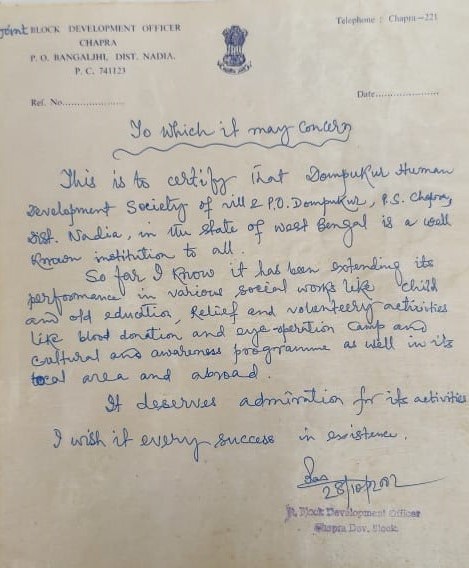 Joint BLOCK DEVELOPMENT OFFICER
CHAPRA
P. O. BANGALJHI, DIST. NADIA.
P. C. 741123
Telephone : Chapra—221
Ref. No.....................
Date.....................
To Which it may concern
This is to certify that Dompukur Human
Development Society of vill & P.O. Dompukur, P.S. Chapra,
Dist. Nadia, in the state of West Bengal is a well
known institution to all.
So far I know it has been extending its
performance in various social works like child
and old eductiion, Relief and volunteery activities
like blood donation and eye-operation camp and
cultural and awareness programme as well in its
local area and abroad.
It deserves admiration for its activities
I wish it every success in existence.
28/10/2002
Jt. Block Development Officer
Chapra Dev. Block